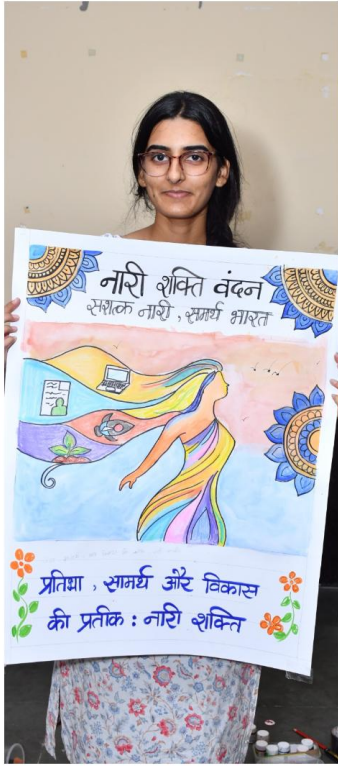 नारी शक्ति वंदन
सशक्त नारी, समर्थ भारत
प्रतिभा, सामर्थ और विकास
की प्रतीक : नारी शक्ति